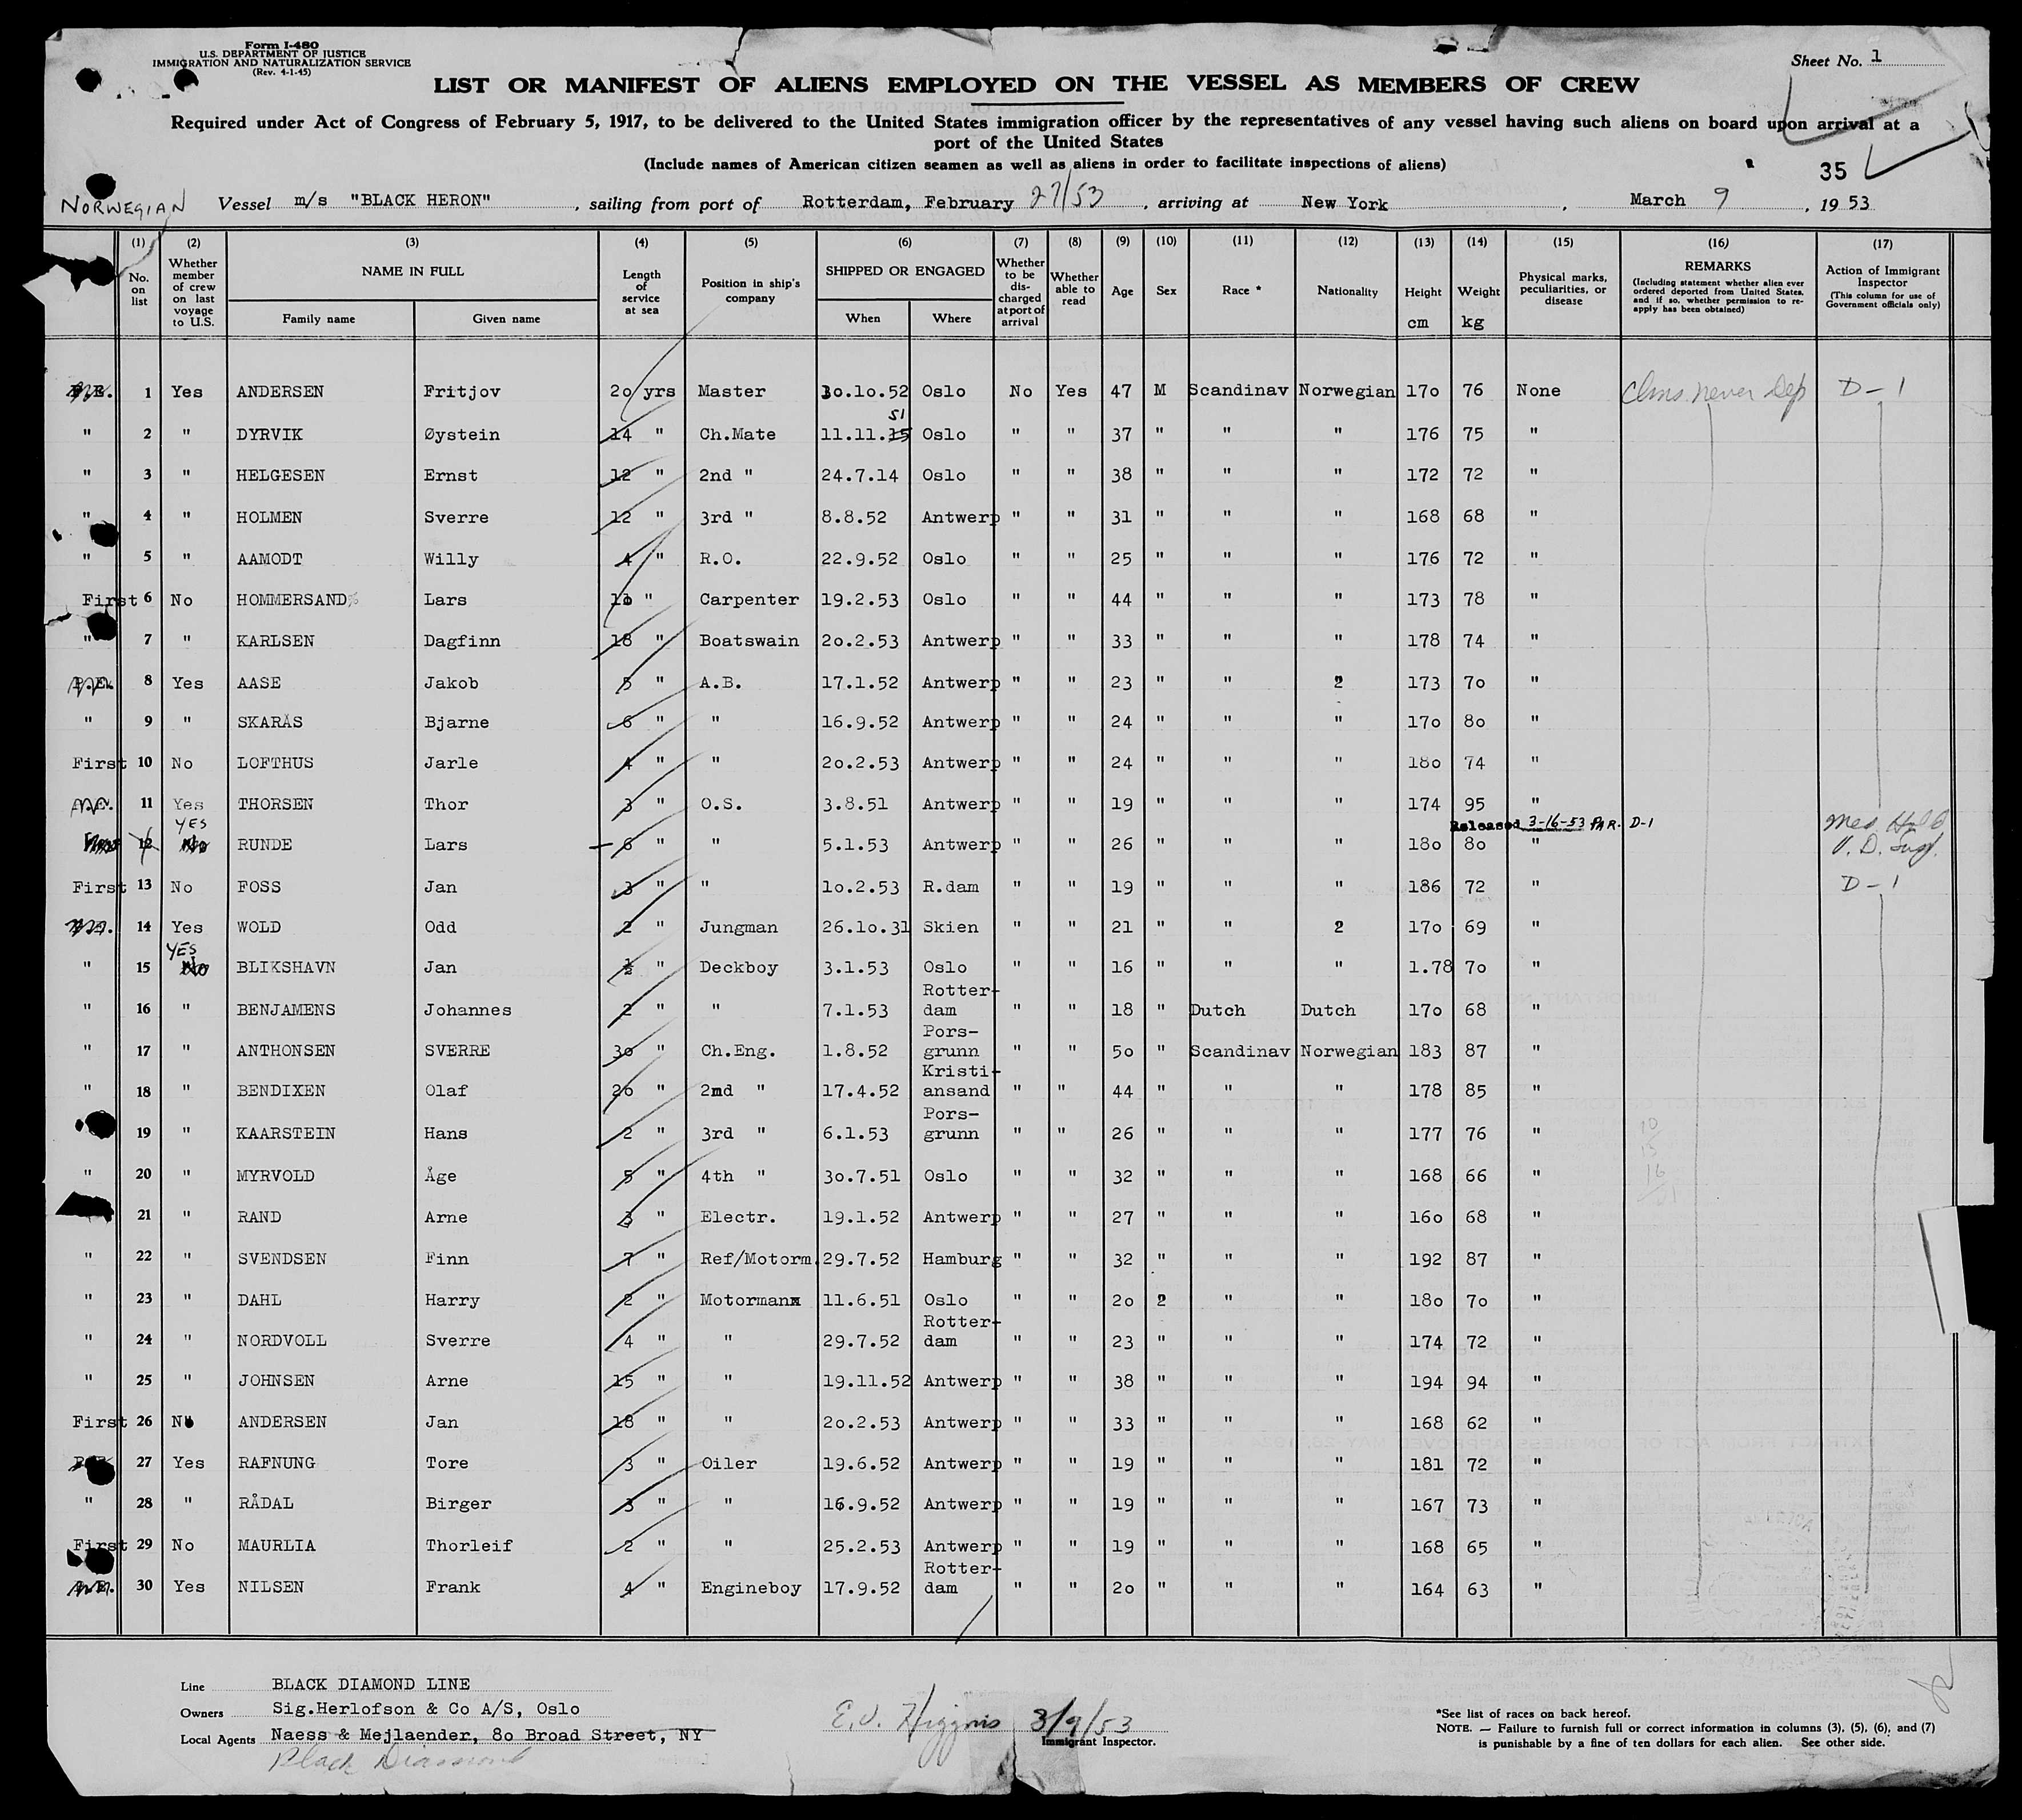 Form I-480
U.S. DEPARTMENT OF JUSTICE
IMMIGRATION AND NATURALIZATION SERVICE
(Rev. 4-1-45)
Sheet No. 1
LIST OR MANIFEST OF ALIENS EMPLOYED ON THE VESSEL AS MEMBERS OF CREW
Required under Act of Congress of February 5, 1917, to be delivered to the United States immigration officer by the representatives of any vessel having such aliens on board upon arrival at a
port of the United States
(Include names of American citizen seamen as well as aliens in order to facilitate inspections of aliens)
35
NORWEGIAN Vessel m/s "BLACK HERON", sailing from port of Rotterdam, February 27/53, arriving at New York, March 9, 1953
(1) (2) (3) (4) (5) (6) (7) (8) (9) (10) (11) (12) (13) (14) (15) (16) (17)
No. on list
Whether member of crew on last voyage to U.S.
NAME IN FULL
Family name Given name
Length of service at sea
Position in ship's company
SHIPPED OR ENGAGED
When Where
Whether to be discharged at port of arrival
Whether able to read
Age
Sex
Race *
Nationality
Height cm
Weight kg
Physical marks, peculiarities, or disease
REMARKS
(Including statement whether alien ever ordered deported from United States, and if so, whether permission to re-apply has been obtained)
Action of Immigrant Inspector
(This column for use of Government officials only)
1 Yes ANDERSEN Fritjov 20 yrs Master 30.10.52 Oslo No Yes 47 M Scandinav Norwegian 170 76 None Clms never Dep D-1
" 2 " DYRVIK Øystein 14 " Ch.Mate 11.11.15 51 Oslo " " 37 " " " 176 75 "
" 3 " HELGESEN Ernst 12 " 2nd " 24.7.14 Oslo " " 38 " " " 172 72 "
" 4 " HOLMEN Sverre 12 " 3rd " 8.8.52 Antwerp " " 31 " " " 168 68 "
" 5 " AAMODT Willy 4 " R.O. 22.9.52 Oslo " " 25 " " " 176 72 "
First 6 No HOMMERSAND Lars " Carpenter 19.2.53 Oslo " " 44 " " " 173 78 "
" 7 " KARLSEN Dagfinn 18 " Boatswain 20.2.53 Antwerp " " 33 " " " 178 74 "
8 Yes AASE Jakob 5 " A.B. 17.1.52 Antwerp " " 23 " " 2 173 70 "
" 9 " SKARÅS Bjarne 6 " " 16.9.52 Antwerp " " 24 " " " 170 80 "
First 10 No LOFTHUS Jarle 4 " " 20.2.53 Antwerp " " 24 " " " 180 74 "
11 Yes THORSEN Thor 3 " O.S. 3.8.51 Antwerp " " 19 " " " 174 95 "
Released 3-16-53 PAR. D-1
12 YES No RUNDE Lars 6 " " 5.1.53 Antwerp " " 26 " " " 180 80 " Med Hold V.D. Susp.
First 13 No FOSS Jan 3 " " 10.2.53 R.dam " " 19 " " " 186 72 " D-1
14 Yes WOLD Odd 2 " Jungman 26.10.31 Skien " " 21 " " 2 170 69 "
" 15 YES No BLIKSHAVN Jan ½ " Deckboy 3.1.53 Oslo " " 16 " " " 1.78 70 "
" 16 " BENJAMENS Johannes 2 " " 7.1.53 Rotterdam " " 18 " Dutch Dutch 170 68 "
" 17 " ANTHONSEN SVERRE 30 " Ch.Eng. 1.8.52 Porsgrunn " " 50 " Scandinav Norwegian 183 87 "
" 18 " BENDIXEN Olaf 20 " 2nd " 17.4.52 Kristiansand " " 44 " " " 178 85 "
19 " KAARSTEIN Hans 2 " 3rd " 6.1.53 Porsgrunn " " 26 " " " 177 76 "
" 20 " MYRVOLD Åge 5 " 4th " 30.7.51 Oslo " " 32 " " " 168 66 "
21 " RAND Arne 3 " Electr. 19.1.52 Antwerp " " 27 " " " 160 68 "
" 22 " SVENDSEN Finn 7 " Ref/Motorm. 29.7.52 Hamburg " " 32 " " " 192 87 "
" 23 " DAHL Harry 2 " Motormanx 11.6.51 Oslo " " 20 2 " " 180 70 "
" 24 " NORDVOLL Sverre 4 " " 29.7.52 Rotterdam " " 23 " " " 174 72 "
" 25 " JOHNSEN Arne 15 " " 19.11.52 Antwerp " " 38 " " " 194 94 "
First 26 No ANDERSEN Jan 18 " " 20.2.53 Antwerp " " 33 " " " 168 62 "
27 Yes RAFNUNG Tore 3 " Oiler 19.6.52 Antwerp " " 19 " " " 181 72 "
" 28 " RÅDAL Birger 3 " " 16.9.52 Antwerp " " 19 " " " 167 73 "
First 29 No MAURLIA Thorleif 2 " " 25.2.53 Antwerp " " 19 " " " 168 65 "
30 Yes NILSEN Frank 4 " Engineboy 17.9.52 Rotterdam " " 20 " " " 164 63 "
Line BLACK DIAMOND LINE
Owners Sig.Herlofson & Co A/S, Oslo
Local Agents Naess & Mejlaender, 80 Broad Street, NY
Black Diamond
E.J. Higgins 3/9/53
Immigrant Inspector.
*See list of races on back hereof.
NOTE. — Failure to furnish full or correct information in columns (3), (5), (6), and (7)
is punishable by a fine of ten dollars for each alien. See other side.